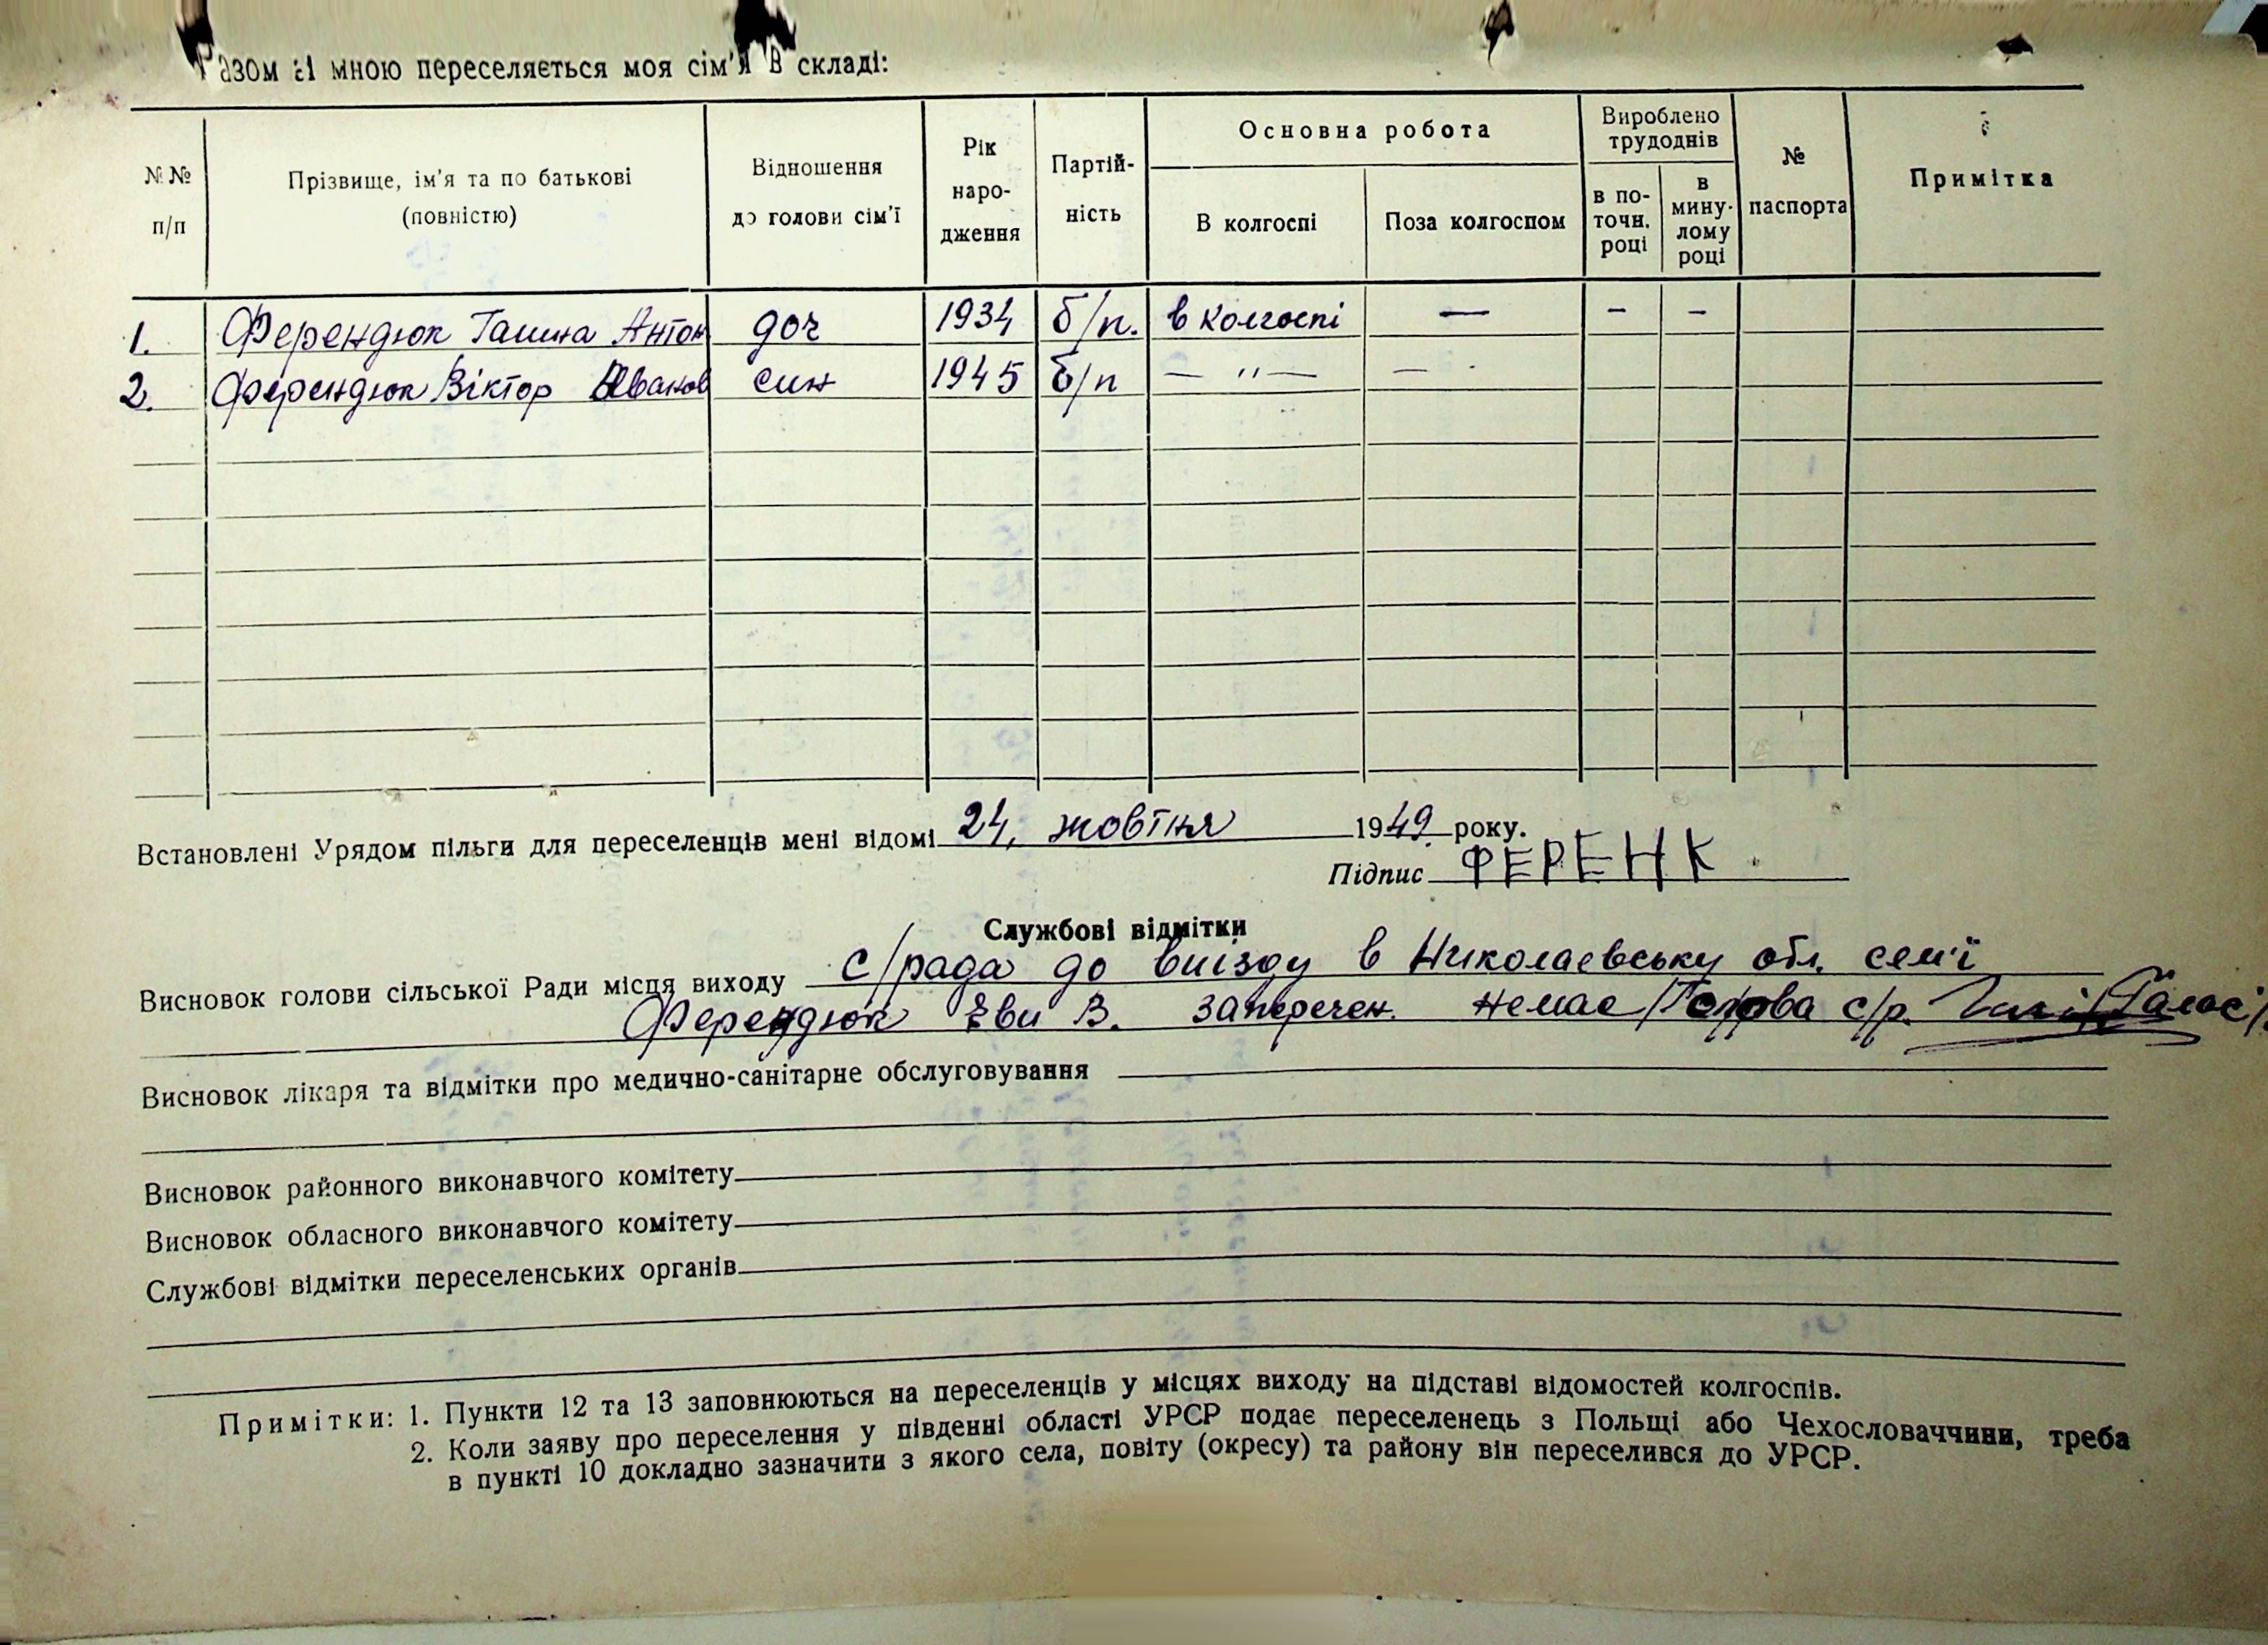 Разом зі мною переселяється моя сім'я в складі:
№№ п/п
Прізвище, ім'я та по батькові (повністю)
Відношення до голови сім'ї
Рік народження
Партійність
Основна робота
В колгоспі
Поза колгоспом
Вироблено трудоднів
в поточн. році
в минулому році
№ паспорта
Примітка
1. Ферендюк Ганна Антон доч 1934 б/п. в колгоспі — – –
2. Ферендюк Віктор Іванов син 1945 б/п — " — —
Встановлені Урядом пільги для переселенців мені відомі 24, жовтня 1949 року.
Підпис ФЕРЕНК
Службові відмітки
Висновок голови сільської Ради місця виходу с/рада до виїзду в Николаевську обл. сем'ї
Ферендюк Еви В. заперечен. немає /Голова с/р.
Висновок лікаря та відмітки про медично-санітарне обслуговування
Висновок районного виконавчого комітету
Висновок обласного виконавчого комітету
Службові відмітки переселенських органів
Примітки: 1. Пункти 12 та 13 заповнюються на переселенців у місцях виходу на підставі відомостей колгоспів.
2. Коли заяву про переселення у південні області УРСР подає переселенець з Польщі або Чехословаччини, треба
в пункті 10 докладно зазначити з якого села, повіту (окресу) та району він переселився до УРСР.